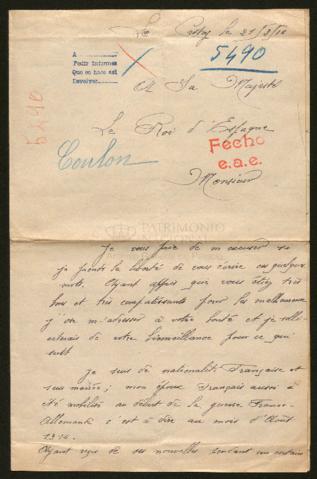 Le
A
Pedir informes
Que se hace así
Devolver
5490
A Sa Majesté
5490
Le Roi d'Espagne
Fecho
e.a.e.
Coulon
Monsieur
PATRIMONIO
NACIONAL
Je vous prie de m'excuser si
je prends la liberté de vous écrire ces quelques
mots. Ayant appris que vous étiez très
bon et très compatissante pour les malheureux
j'ose m'adresser à votre bonté et je solli-
citerais de votre bienveillance pour ce qui
suit.
Je suis de nationalité Française et
suis mariée; mon époux Français aussi a
été mobilisé au début de la guerre Franco-
Allemande c'est à dire au mois d'Août
1914.
Ayant reçu de ses nouvelles pendant un certain